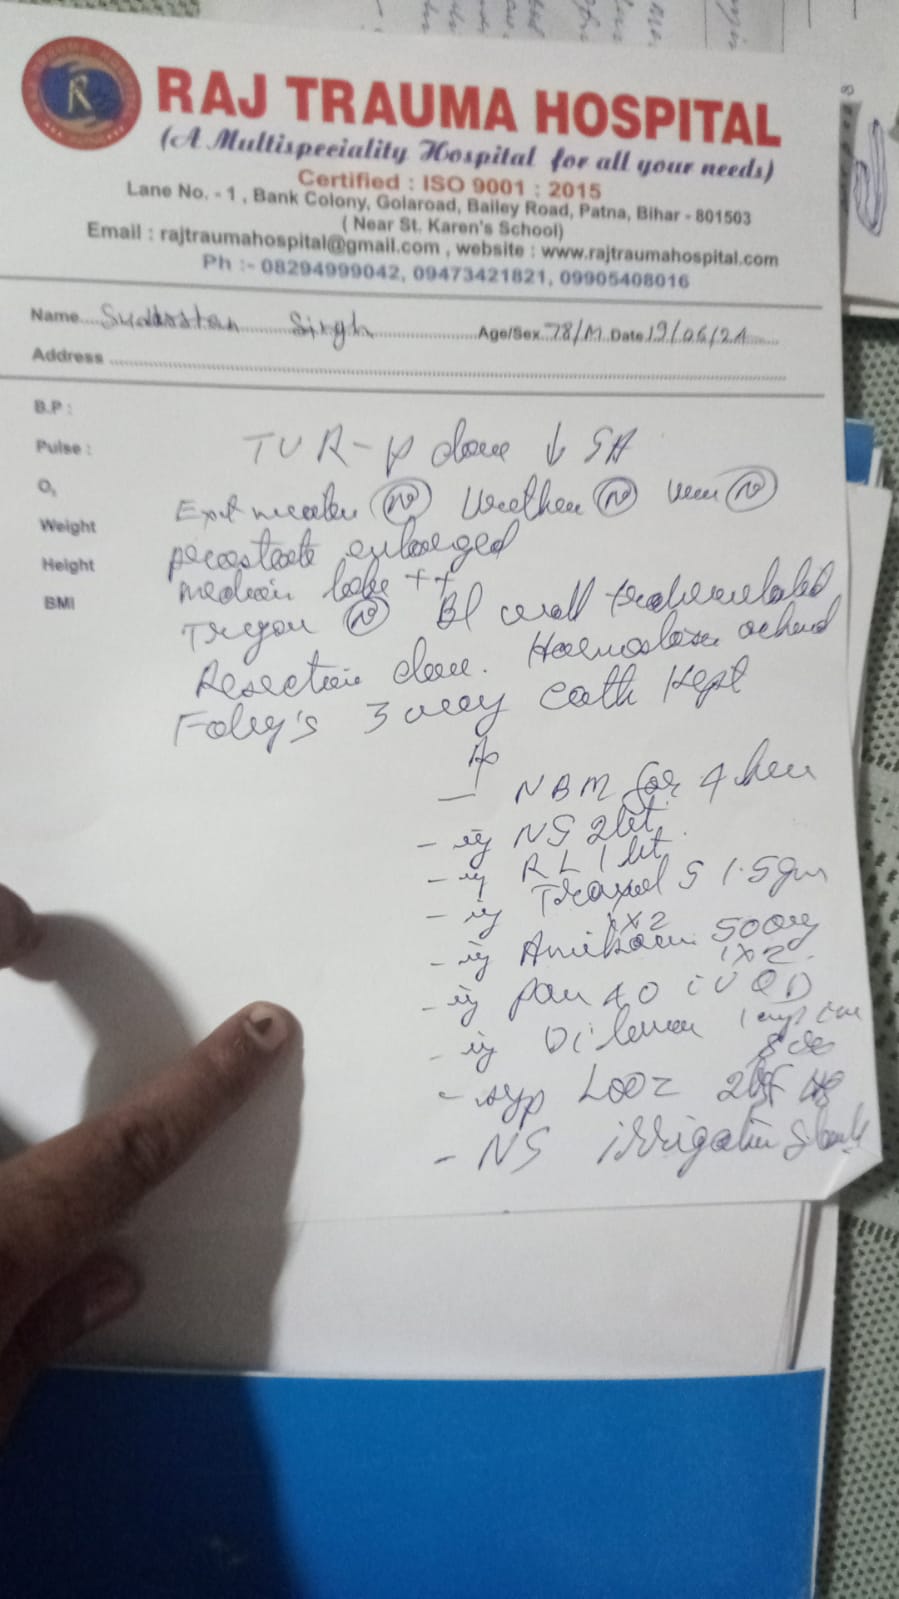 RAJ TRAUMA HOSPITAL
(A Multispeciality Hospital for all your needs)
Certified : ISO 9001 : 2015
Lane No. - 1 , Bank Colony, Golaroad, Bailey Road, Patna, Bihar - 801503
( Near St. Karen's School)
Email : rajtraumahospital@gmail.com , website : www.rajtraumahospital.com
Ph :- 08294999042, 09473421821, 09905408016
Name Singh Age/Sex 78/M Date 19/06/21
Address
B.P :
Pulse :
O₂
Weight
Height
BMI
TUR-P done ↓ SA
Ext meatus (N) Urethra (N) (N)
prostate enlarged
median lobe ++
Trigon (N) Bl wall trabeculated
Resection done. Haemostasis achieved
Foley's 3 way cath kept
- NBM for 4 hrs
- inj NS 2 lit
- inj RL 1 lit
- inj S 1.5gm
1x2
- inj Amikacin 500mg
1x2
- inj Pan 40 IV OD
- inj 1 amp
- syp Looz HS
- NS irrigation